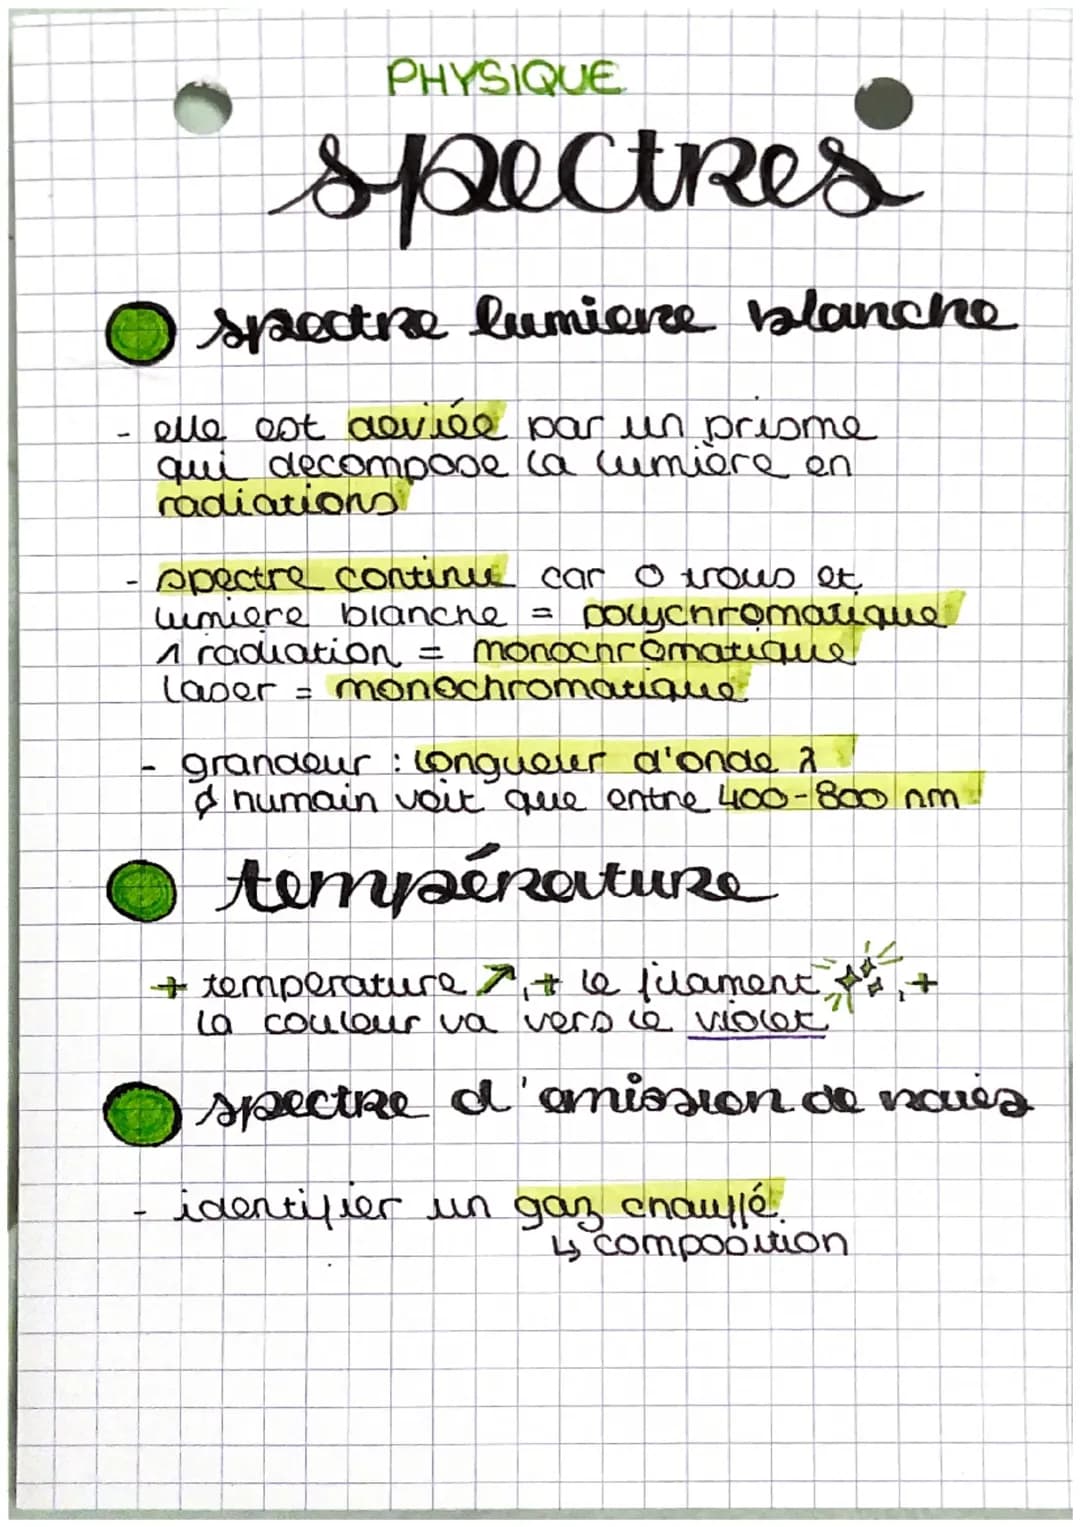 PHYSIQUE
spectres
spectre lumiere blanche
- elle est deviée par un prisme
qui decompose la lumière en
radiations
- spectre continu car 0 trous et
lumiere blanche = polychromatique
1 radiation = monochromatique
laser = monochromatique
- grandeur : longueur d'onde λ
humain voit que entre 400-800 nm
température
+ temperature ↗, + le filament , +
la couleur va vers le violet
spectre d'emission de raies
- identifier un gaz chauffé.
↳ composition